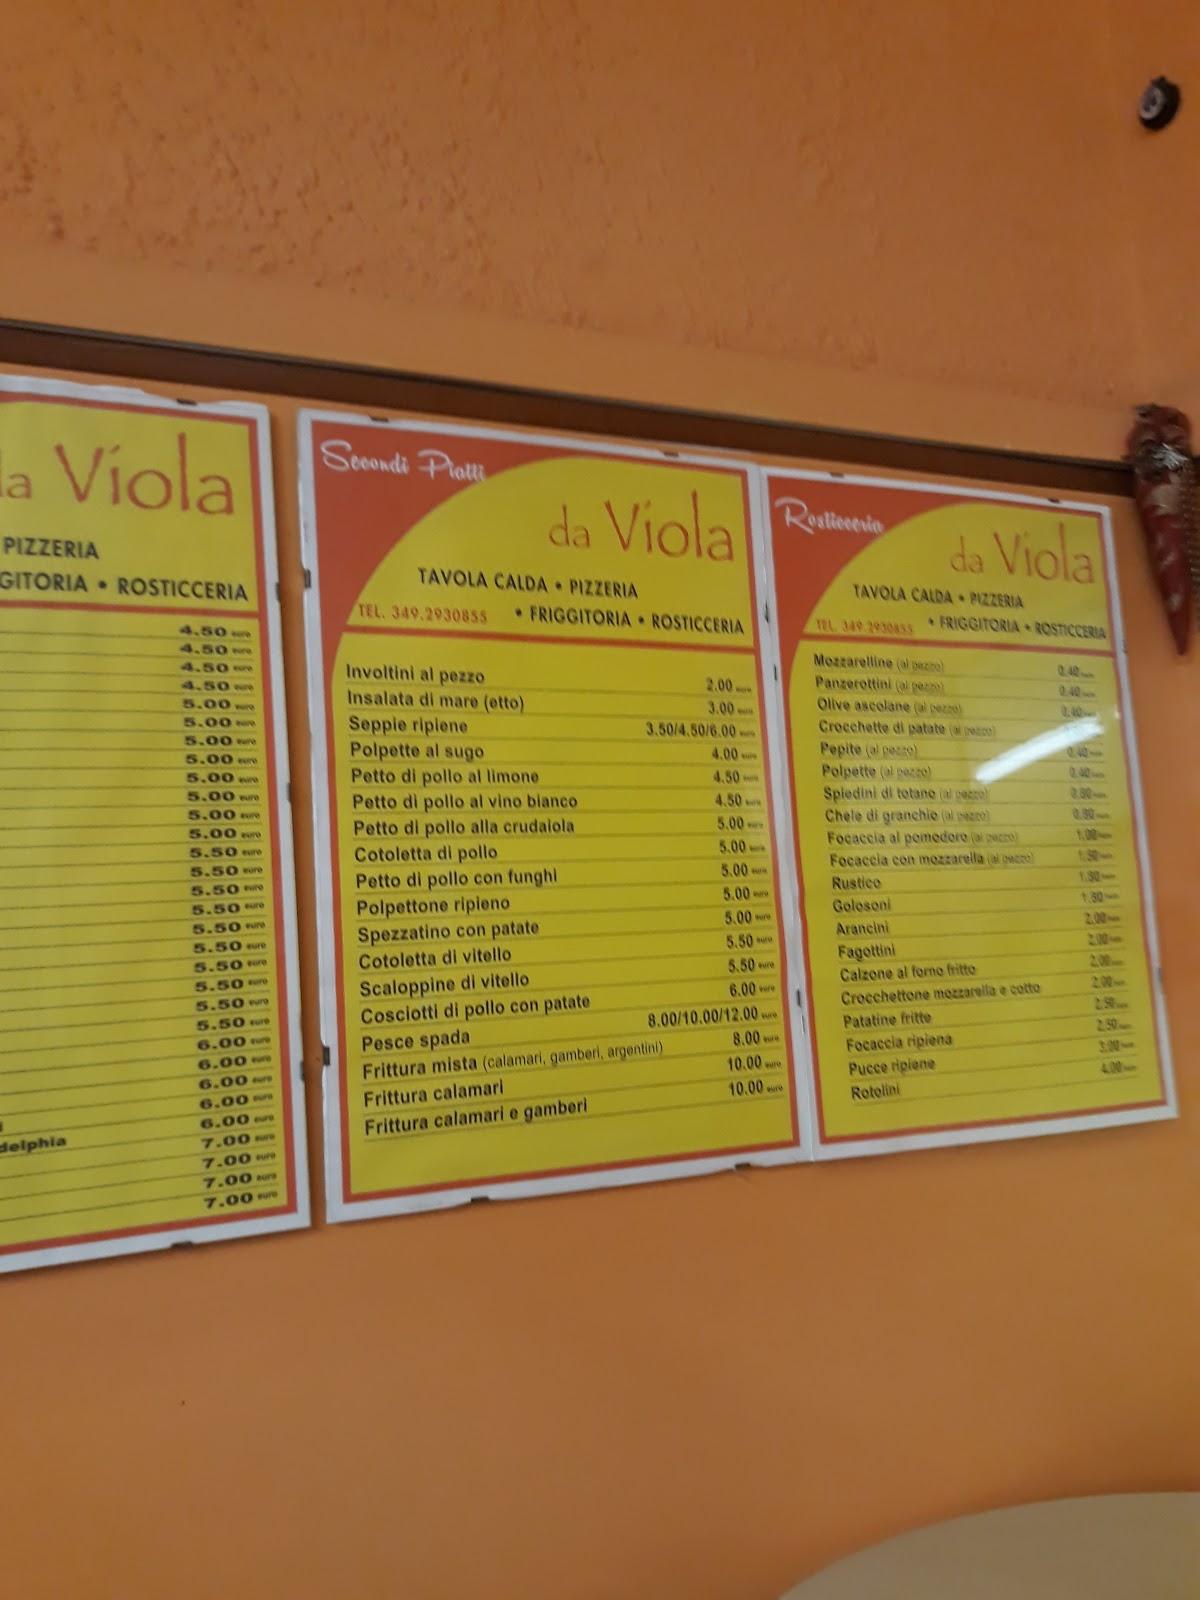 da Viola
PIZZERIA
GGITORIA • ROSTICCERIA
4.50 euro
4.50 euro
4.50 euro
4.50 euro
5.00 euro
5.00 euro
5.00 euro
5.00 euro
5.00 euro
5.00 euro
5.00 euro
5.00 euro
5.50 euro
5.50 euro
5.50 euro
5.50 euro
5.50 euro
5.50 euro
5.50 euro
5.50 euro
5.50 euro
5.50 euro
6.00 euro
6.00 euro
6.00 euro
6.00 euro
6.00 euro
delphia 7.00 euro
7.00 euro
7.00 euro
7.00 euro
Secondi Piatti
da Viola
TAVOLA CALDA • PIZZERIA
TEL. 349.2930855 • FRIGGITORIA • ROSTICCERIA
Involtini al pezzo 2.00 euro
Insalata di mare (etto) 3.00 euro
Seppie ripiene 3.50/4.50/6.00 euro
Polpette al sugo 4.00 euro
Petto di pollo al limone 4.50 euro
Petto di pollo al vino bianco 4.50 euro
Petto di pollo alla crudaiola 5.00 euro
Cotoletta di pollo 5.00 euro
Petto di pollo con funghi 5.00 euro
Polpettone ripieno 5.00 euro
Spezzatino con patate 5.00 euro
Cotoletta di vitello 5.50 euro
Scaloppine di vitello 5.50 euro
Cosciotti di pollo con patate 6.00 euro
Pesce spada 8.00/10.00/12.00 euro
Frittura mista (calamari, gamberi, argentini) 8.00 euro
Frittura calamari 10.00 euro
Frittura calamari e gamberi 10.00 euro
Rosticceria
da Viola
TAVOLA CALDA • PIZZERIA
TEL. 349.2930855 • FRIGGITORIA • ROSTICCERIA
Mozzarelline (al pezzo) 0.40 euro
Panzerottini (al pezzo) 0.40 euro
Olive ascolane (al pezzo) 0.40 euro
Crocchette di patate (al pezzo)
Pepite (al pezzo) 0.40 euro
Polpette (al pezzo) 0.40 euro
Spiedini di totano (al pezzo) 0.80 euro
Chele di granchio (al pezzo) 0.80 euro
Focaccia al pomodoro (al pezzo) 1.00 euro
Focaccia con mozzarella (al pezzo) 1.50 euro
Rustico 1.50 euro
Golosoni 1.50 euro
Arancini 2.00 euro
Fagottini 2.00 euro
Calzone al forno fritto 2.00 euro
Crocchettone mozzarella e cotto 2.00 euro
Patatine fritte 2.50 euro
Focaccia ripiena 2.50 euro
Pucce ripiene 3.00 euro
Rotolini 4.00 euro